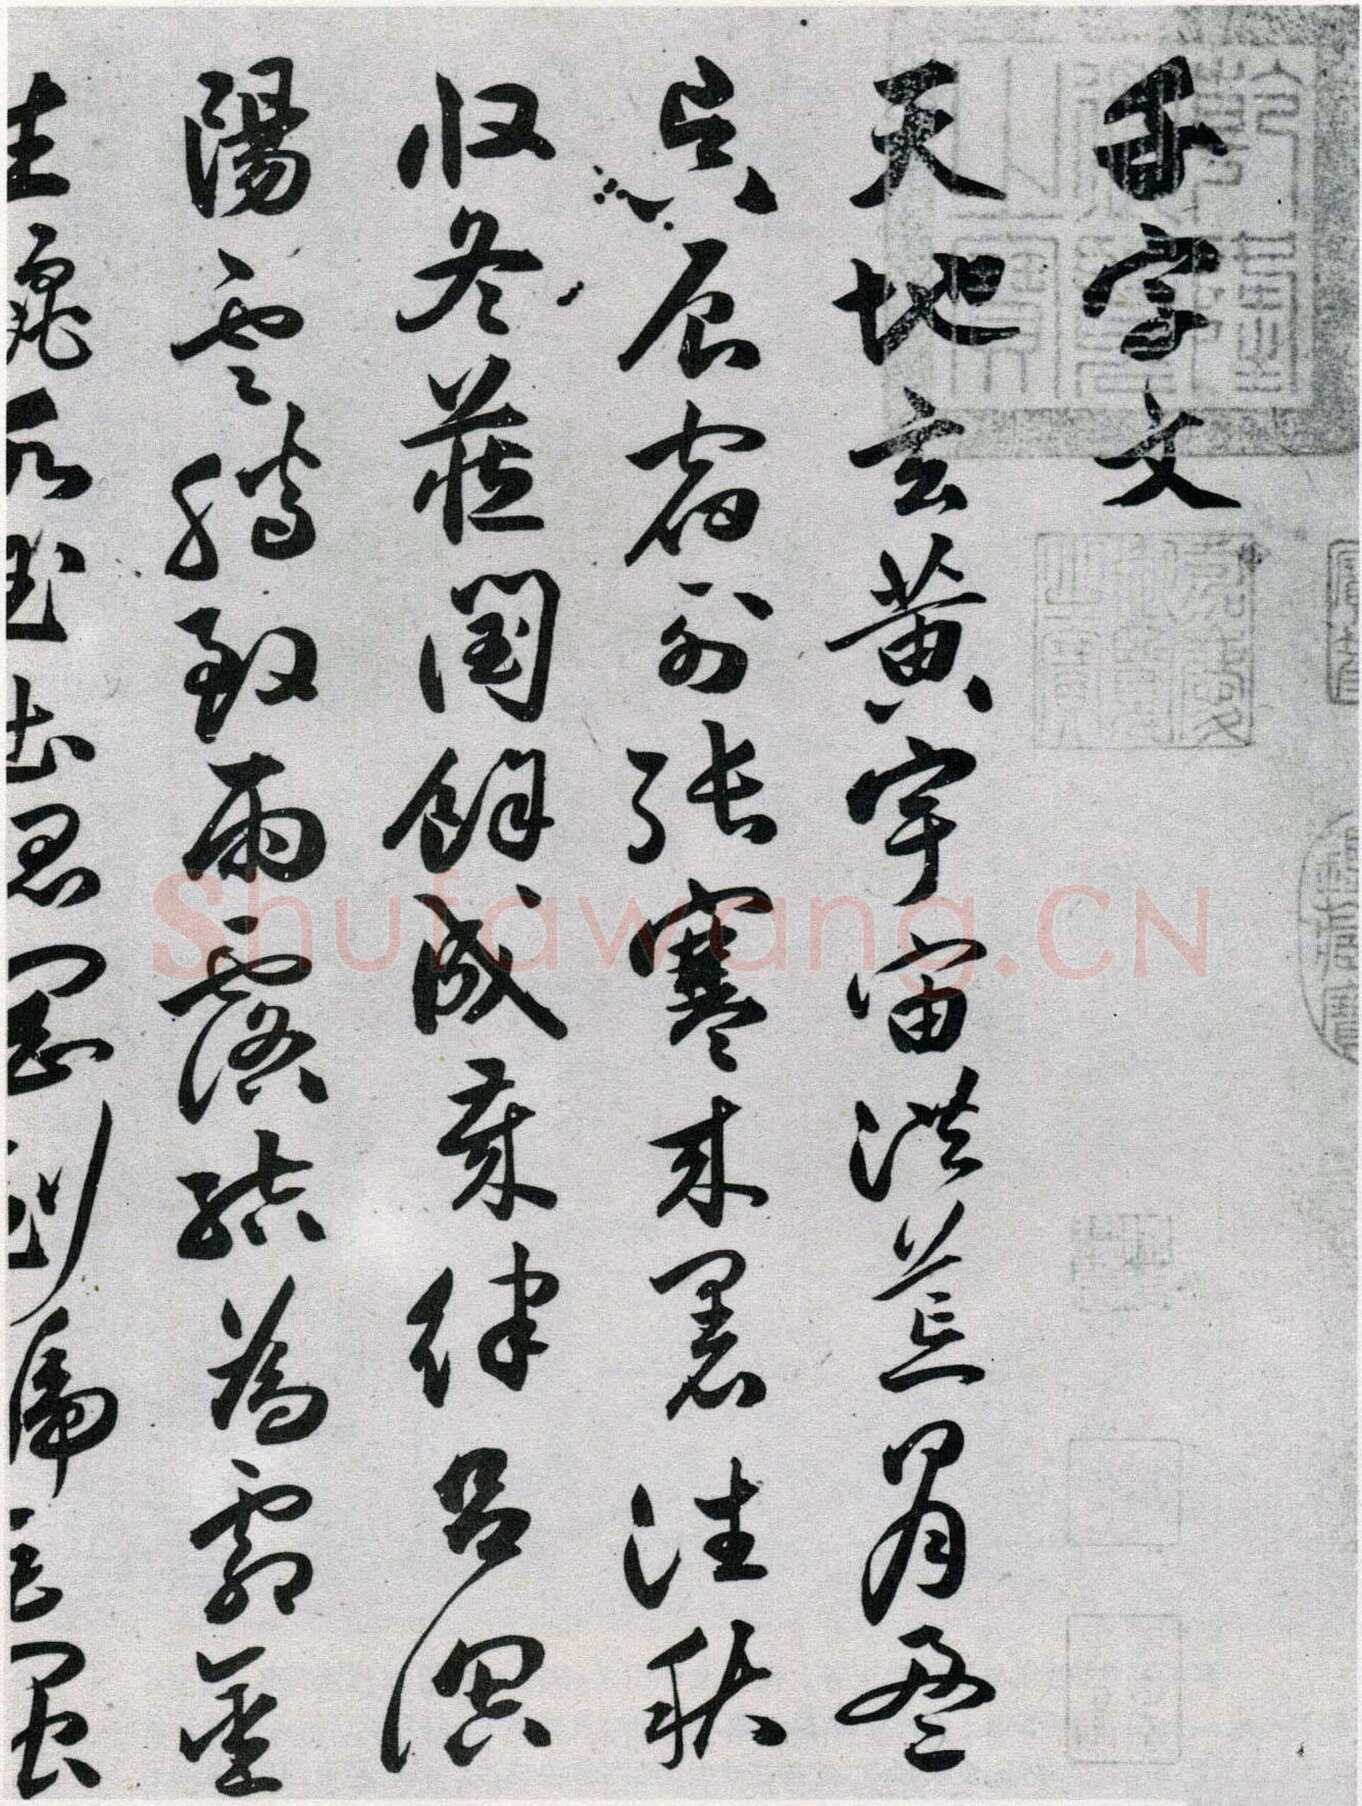 千字文
天地玄黃宇宙洪荒日月盈
昃辰宿列張寒來暑往秋
收冬藏閏餘成歲律呂調
陽雲騰致雨露結為霜金
生麗水玉出昆岡劍號巨闕
嘉慶御覽之寶
Shufawang.CN